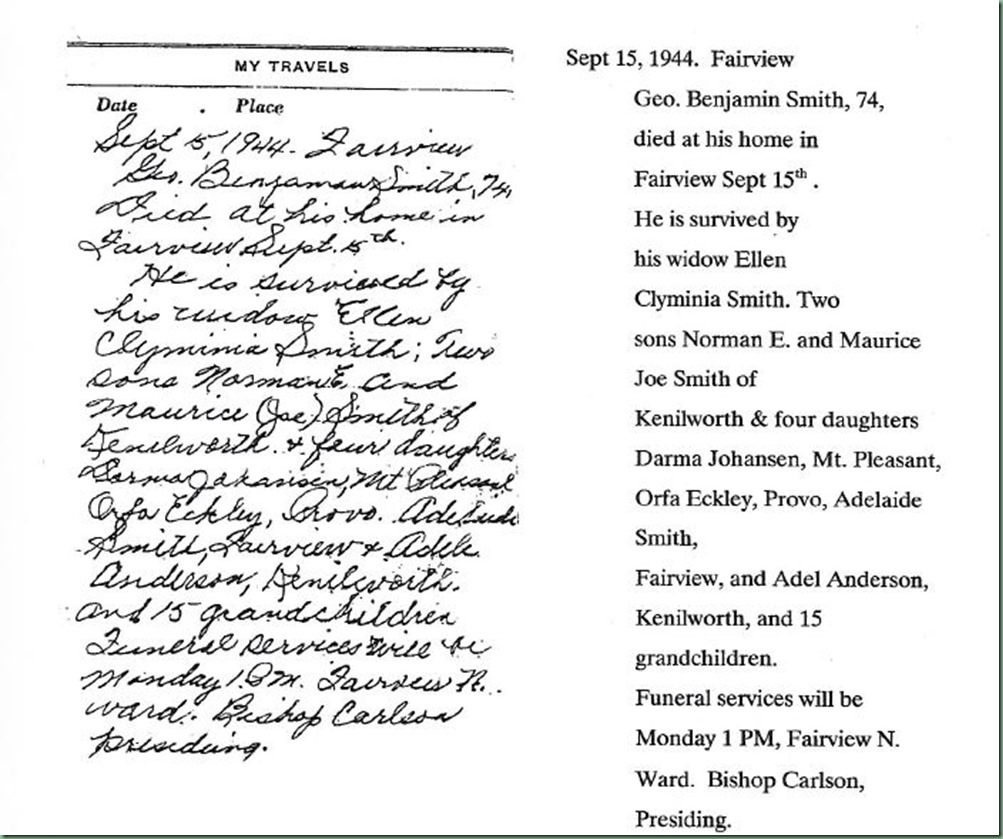 MY TRAVELS
Date . Place
Sept 15, 1944. Fairview
Geo. Benjaman Smith, 74,
Died at his home in
Fairview Sept. 15th.
He is survived by
his widow Ellen
Clyminia Smith; Two
sons Norman E. and
Maurice (Joe) Smith of
Kenilworth. & four daughters
Darma Johansen, Mt Pleasant
Orfa Eckley, Provo. Adelaide
Smith, Fairview & Adele
Anderson, Kenilworth.
and 15 grandchildren
Funeral services will be
Monday 1. P.M. Fairview N.
ward. Bishop Carlson
presiding.
Sept 15, 1944. Fairview
Geo. Benjamin Smith, 74,
died at his home in
Fairview Sept 15th .
He is survived by
his widow Ellen
Clyminia Smith. Two
sons Norman E. and Maurice
Joe Smith of
Kenilworth & four daughters
Darma Johansen, Mt. Pleasant,
Orfa Eckley, Provo, Adelaide
Smith,
Fairview, and Adel Anderson,
Kenilworth, and 15
grandchildren.
Funeral services will be
Monday 1 PM, Fairview N.
Ward. Bishop Carlson,
Presiding.